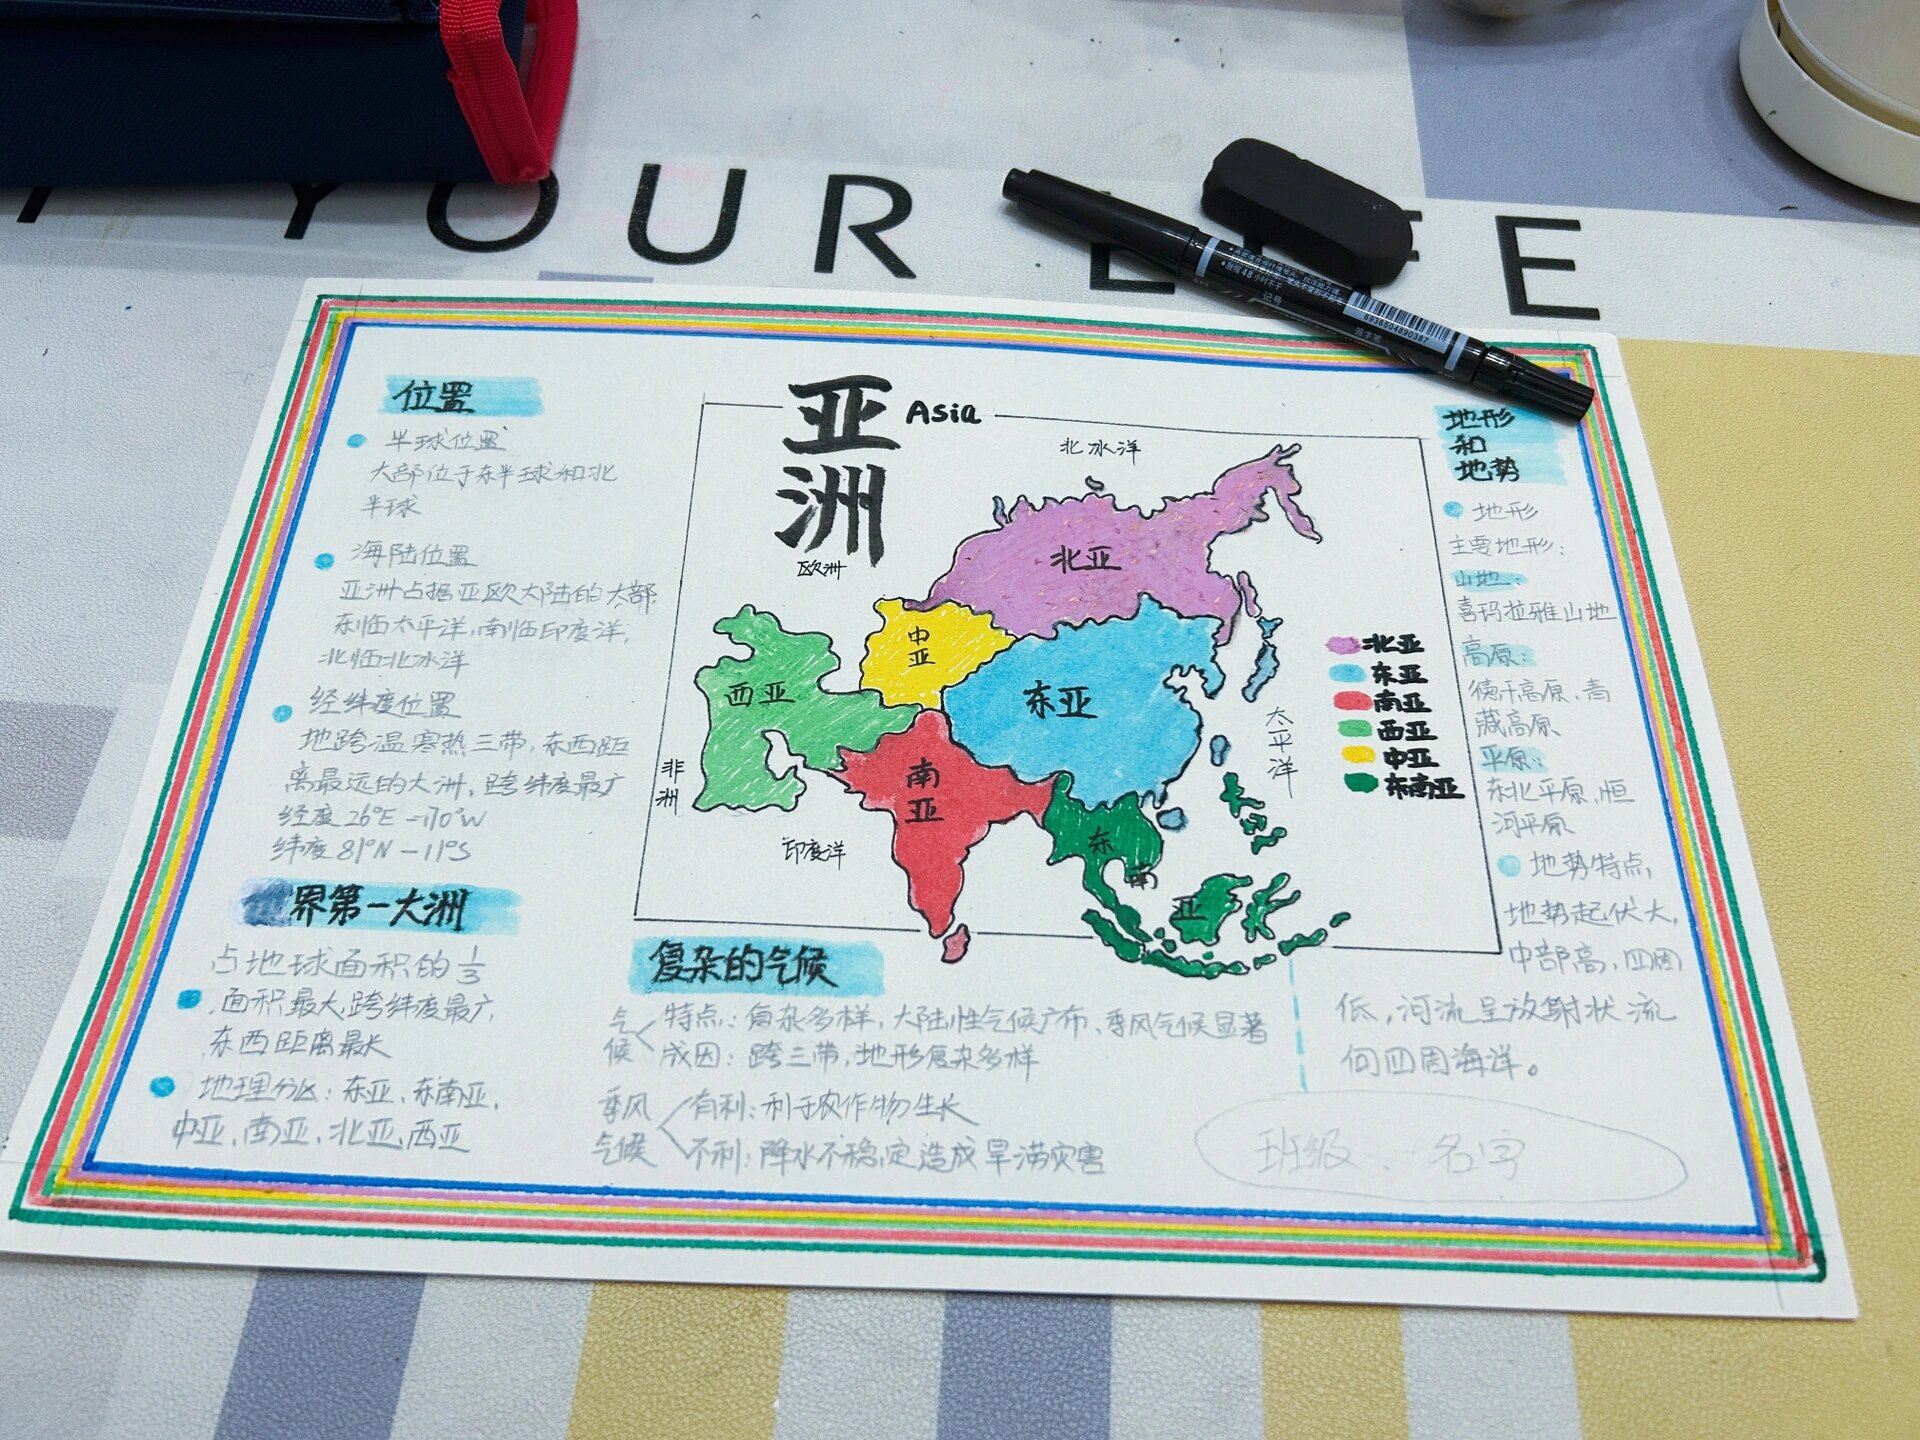 YOUR
E
48小时不干
记号
8936504890387
位置
半球位置
大部位于东半球和北
半球
海陆位置
亚洲占据亚欧大陆的大部
东临太平洋,南临印度洋,
北临北冰洋
经纬度位置
地跨温寒热三带,东西距
离最远的大洲,跨纬度最广
经度26°E-170°W
纬度81°N-11°S
界第一大洲
占地球面积的1/3
面积最大,跨纬度最广,
东西距离最长
地理分区:东亚、东南亚、
中亚、南亚、北亚、西亚
亚洲
Asia
北冰洋
欧洲
北亚
中亚
西亚
东亚
南亚
东南亚
非洲
印度洋
太平洋
北亚
东亚
南亚
西亚
中亚
东南亚
复杂的气候
气候
特点:复杂多样,大陆性气候广布、季风气候显著
成因:跨三带,地形复杂多样
季风气候
有利:利于农作物生长
不利:降水不稳,定造成旱涝灾害
地形
和
地势
地形
主要地形:
山地:
喜玛拉雅山地
高原:
德干高原、青
藏高原
平原:
东北平原,恒
河平原
地势特点,
地势起伏大,
中部高,四周
低,河流呈放射状流
向四周海洋。
班级、名字